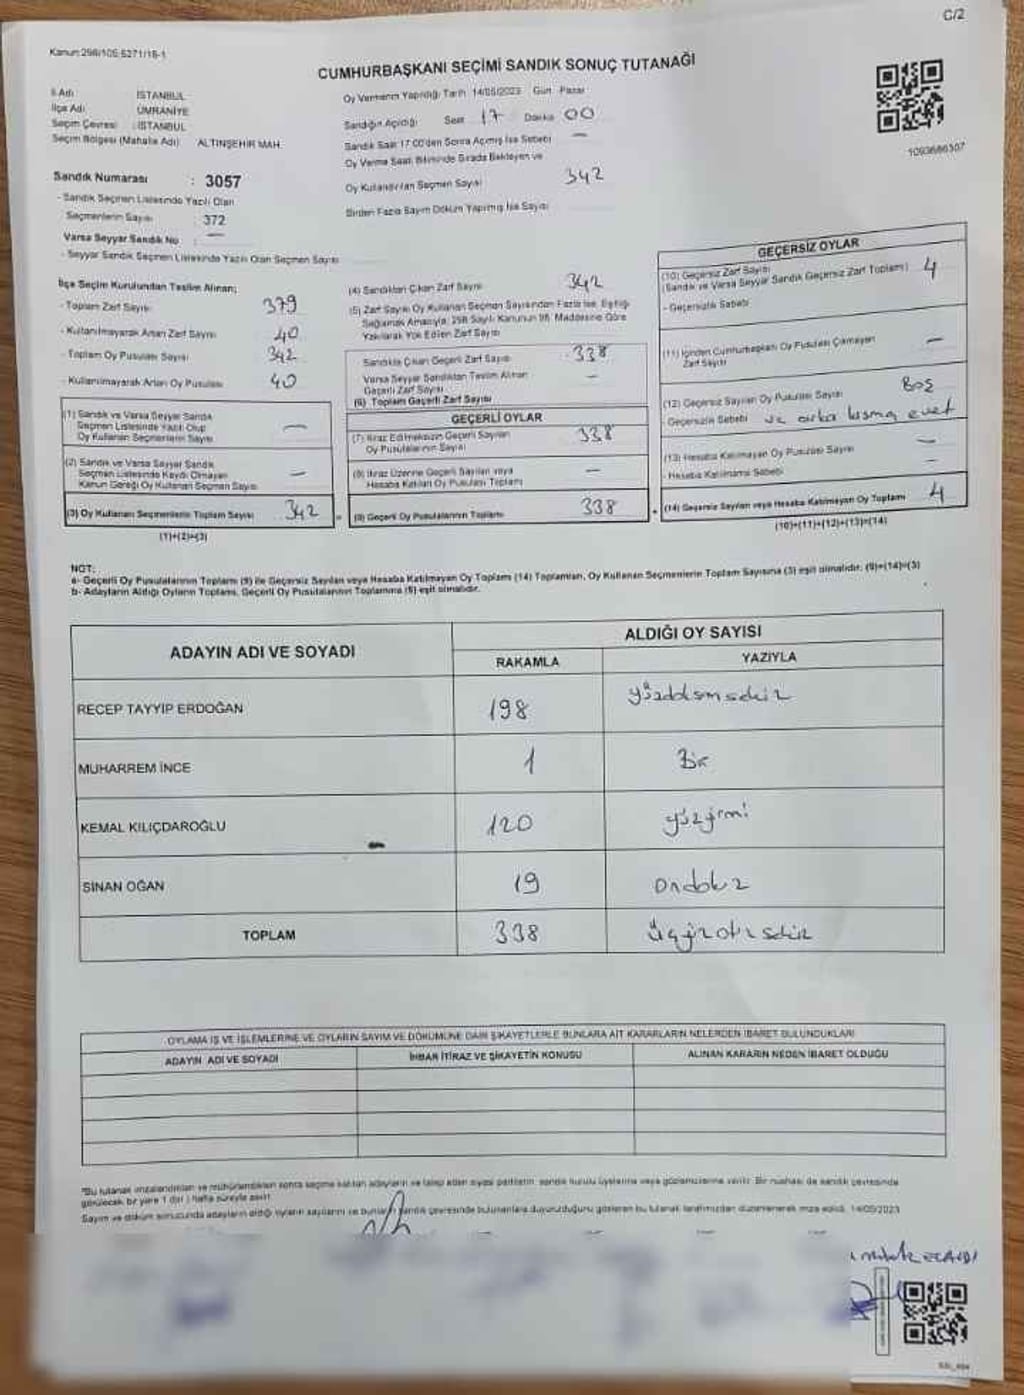 C/2
Kanun:298/105-5271/18-1
CUMHURBAŞKANI SEÇİMİ SANDIK SONUÇ TUTANAĞI
İl Adı : İSTANBUL
İlçe Adı : ÜMRANİYE
Seçim Çevresi : İSTANBUL
Seçim Bölgesi (Mahalle Adı) ALTINŞEHİR MAH.
Sandık Numarası : 3057
- Sandık Seçmen Listesinde Yazılı Olan
Seçmenlerin Sayısı 372
Varsa Seyyar Sandık No : —
- Seyyar Sandık Seçmen Listesinde Yazılı Olan Seçmen Sayısı
Oy Vermenin Yapıldığı Tarih 14/05/2023 Gün Pazar
Sandığın Açıldığı Saat 17 Dakika 00
Sandık Saat 17.00'den Sonra Açılmış İse Sebebi —
Oy Verme Saati Bitiminde Sırada Bekleyen ve
Oy Kullandırılan Seçmen Sayısı 342
Birden Fazla Sayım Döküm Yapılmış İse Sayısı
1093686307
İlçe Seçim Kurulundan Teslim Alınan;
- Toplam Zarf Sayısı 379
- Kullanılmayarak Artan Zarf Sayısı 40
- Toplam Oy Pusulası Sayısı 342
- Kullanılmayarak Artan Oy Pusulası 40
(1) Sandık ve Varsa Seyyar Sandık
Seçmen Listesinde Yazılı Olup
Oy Kullanan Seçmenlerin Sayısı —
(2) Sandık ve Varsa Seyyar Sandık
Seçmen Listesinde Kaydı Olmayan
Kanun Gereği Oy Kullanan Seçmen Sayısı —
(3) Oy Kullanan Seçmenlerin Toplam Sayısı 342
(1)+(2)=(3)
(4) Sandıktan Çıkan Zarf Sayısı 342
(5) Zarf Sayısı Oy Kullanan Seçmen Sayısından Fazla İse, Eşitliği
Sağlamak Amacıyla; 298 Sayılı Kanunun 98. Maddesine Göre
Yakılarak Yok Edilen Zarf Sayısı
Sandıkta Çıkan Geçerli Zarf Sayısı 338
Varsa Seyyar Sandıktan Teslim Alınan
Geçerli Zarf Sayısı —
(6) Toplam Geçerli Zarf Sayısı
GEÇERLİ OYLAR
(7) İtiraz Edilmeksizin Geçerli Sayılan
Oy Pusulalarının Sayısı 338
(8) İtiraz Üzerine Geçerli Sayılan veya
Hesaba Katılan Oy Pusulası Toplamı —
(9) Geçerli Oy Pusulalarının Toplamı 338
GEÇERSİZ OYLAR
(10) Geçersiz Zarf Sayısı
(Sandık ve Varsa Seyyar Sandık Geçersiz Zarf Toplamı) 4
- Geçersizlik Sebebi
(11) İçinden Cumhurbaşkanı Oy Pusulası Çıkmayan
Zarf Sayısı —
(12) Geçersiz Sayılan Oy Pusulası Sayısı Boş
- Geçersizlik Sebebi ve arka basma evet
(13) Hesaba Katılmayan Oy Pusulası Sayısı —
- Hesaba Katılmama Sebebi —
(14) Geçersiz Sayılan veya Hesaba Katılmayan Oy Toplamı 4
(10)+(11)+(12)+(13)=(14)
NOT:
a- Geçerli Oy Pusulalarının Toplamı (9) ile Geçersiz Sayılan veya Hesaba Katılmayan Oy Toplamı (14) Toplamları, Oy Kullanan Seçmenlerin Toplam Sayısına (3) eşit olmalıdır. (9)+(14)=(3)
b- Adayların Aldığı Oyların Toplamı, Geçerli Oy Pusulalarının Toplamına (9) eşit olmalıdır.
ADAYIN ADI VE SOYADI
ALDIĞI OY SAYISI
RAKAMLA YAZIYLA
RECEP TAYYİP ERDOĞAN 198 yüzdoksansekiz
MUHARREM İNCE 1 Bir
KEMAL KILIÇDAROĞLU 120 yüzyirmi
SİNAN OĞAN 19 ondokuz
TOPLAM 338 üçyüzotuzsekiz
OYLAMA İŞ VE İŞLEMLERİNE VE OYLARIN SAYIM VE DÖKÜMÜNE DAİR ŞİKAYETLERLE BUNLARA AİT KARARLARIN NELERDEN İBARET BULUNDUKLARI
ADAYIN ADI VE SOYADI İHBAR İTİRAZ VE ŞİKAYETİN KONUSU ALINAN KARARIN NEDEN İBARET OLDUĞU
*Bu tutanak imzalandıktan ve mühürlendikten sonra seçime katılan adayların ve talep eden siyasi partilerin, sandık kurulu üyelerine veya gözlemcilerine verilir. Bir nüshası da sandık çevresinde
görülecek bir yere 1 (bir) hafta süreyle asılır.
Sayım ve döküm sonucunda adayların aldığı oyların sayılarını ve bunların sandık çevresinde bulunanlara duyurulduğunu gösteren bu tutanak tarafımızdan düzenlenerek imza edildi. 14/05/2023